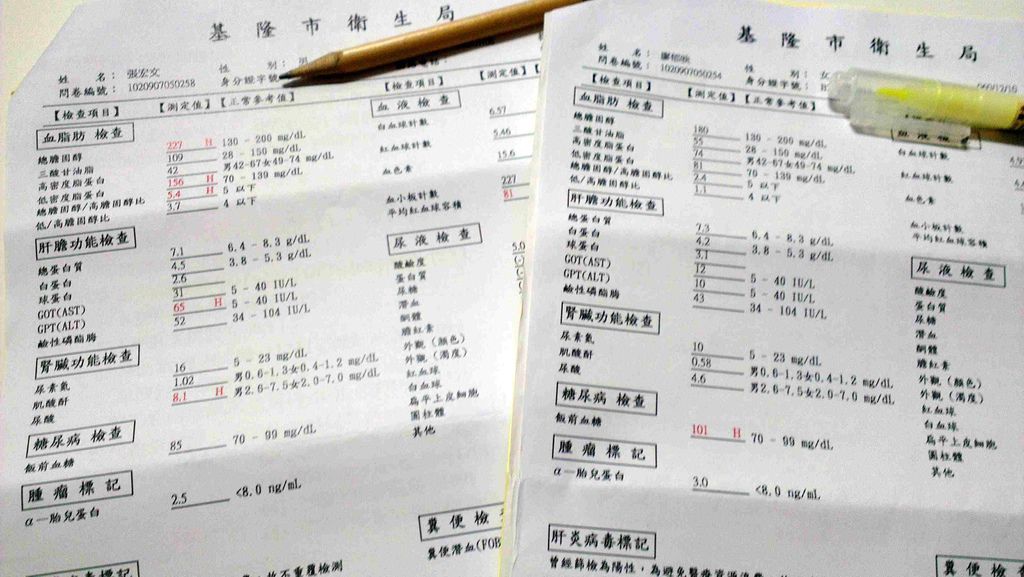 基隆市衛生局
姓 名: 張宏文 性 別: 男
問卷編號: 1020907050258 身分證字號:
【檢查項目】 【測定值】 【正常參考值】 【檢查項目】 【測定值】
血脂肪 檢查 血液檢查
總膽固醇 227 H 130 - 200 mg/dL 白血球計數 6.57
三酸甘油脂 109 28 - 150 mg/dL 紅血球計數 5.46
高密度脂蛋白 42 男42-67女49-74 mg/dL 血色素 15.6
低密度脂蛋白 156 H 70 - 139 mg/dL
總膽固醇/高膽固醇比 5.4 H 5 以下 血小板計數 227
低/高膽固醇比 3.7 4 以下 平均紅血球容積 81
肝膽功能檢查 尿液檢查
總蛋白質 7.1 6.4 - 8.3 g/dL 酸鹼度 5.0
白蛋白 4.5 3.8 - 5.3 g/dL 蛋白質
球蛋白 2.6 尿糖
GOT(AST) 31 5 - 40 IU/L 潛血
GPT(ALT) 65 H 5 - 40 IU/L 酮體
鹼性磷酯酶 52 34 - 104 IU/L 膽紅素
腎臟功能檢查 外觀 (顏色)
尿素氮 16 5 - 23 mg/dL 外觀 (濁度)
肌酸酐 1.02 男0.6-1.3女0.4-1.2 mg/dL 紅血球
尿酸 8.1 H 男2.6-7.5女2.0-7.0 mg/dL 白血球
扁平上皮細胞
糖尿病 檢查 圓柱體
飯前血糖 85 70 - 99 mg/dL 其他
腫瘤標記
α—胎兒蛋白 2.5 <8.0 ng/mL
糞便檢
糞便潛血(FOB
不重覆檢測
基隆市衛生局
姓 名: 性 別: 女
問卷編號: 1020907050254 身分證字號:
【檢查項目】 【測定值】 【正常參考值】
血脂肪 檢查 血液檢
總膽固醇 180 130 - 200 mg/dL 白血球計數
三酸甘油脂 55 28 - 150 mg/dL
高密度脂蛋白 74 男42-67女49-74 mg/dL 紅血球計數
低密度脂蛋白 81 70 - 139 mg/dL
總膽固醇/高膽固醇比 2.4 5 以下 血色素
低/高膽固醇比 1.1 4 以下
肝膽功能檢查 血小板計數
總蛋白質 7.3 6.4 - 8.3 g/dL 平均紅血球容積
白蛋白 4.2 3.8 - 5.3 g/dL
球蛋白 3.1 尿液檢查
GOT(AST) 12 5 - 40 IU/L 酸鹼度
GPT(ALT) 10 5 - 40 IU/L 蛋白質
鹼性磷酯酶 43 34 - 104 IU/L 尿糖
腎臟功能檢查 潛血
酮體
尿素氮 10 5 - 23 mg/dL 膽紅素
肌酸酐 0.58 男0.6-1.3女0.4-1.2 mg/dL 外觀 (顏色)
尿酸 4.6 男2.6-7.5女2.0-7.0 mg/dL 外觀 (濁度)
糖尿病 檢查 紅血球
白血球
飯前血糖 101 H 70 - 99 mg/dL 扁平上皮細胞
腫瘤標記 圓柱體
其他
α—胎兒蛋白 3.0 <8.0 ng/mL
肝炎病毒標記
曾經篩檢為陽性，為避免醫療資源浪費 糞便檢